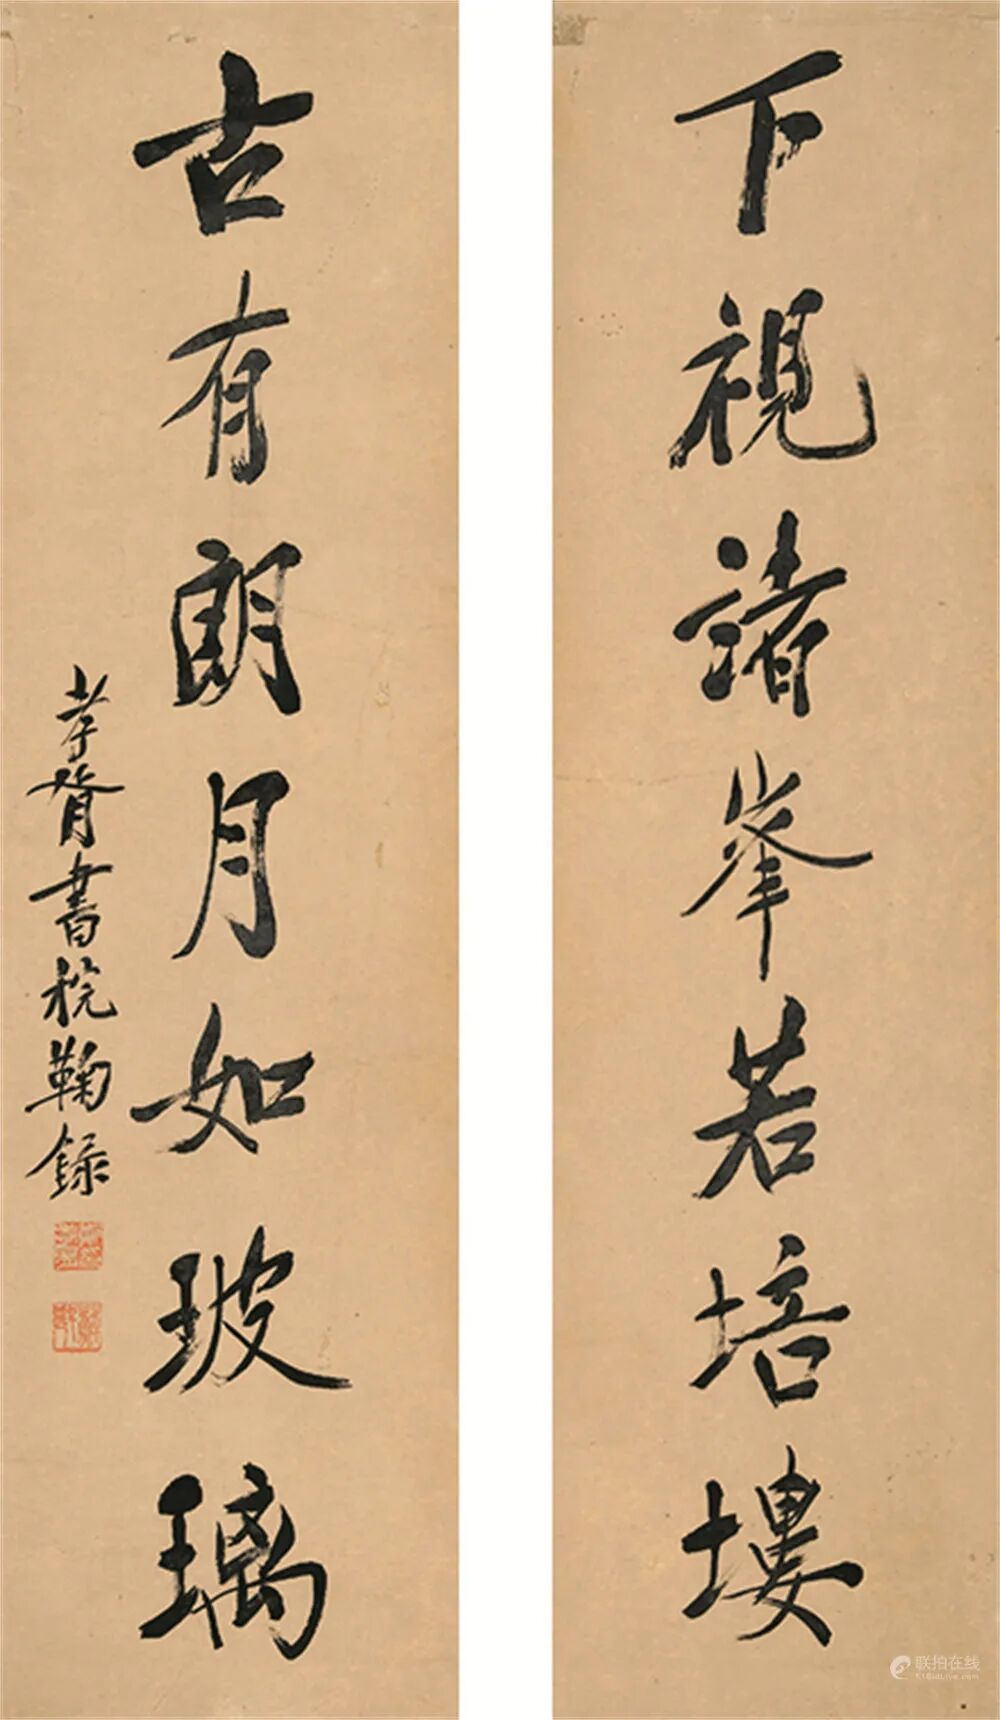 下視諸峯若培塿
古有朗月如玻璃
孝胥書稅鞠錄
联拍在线